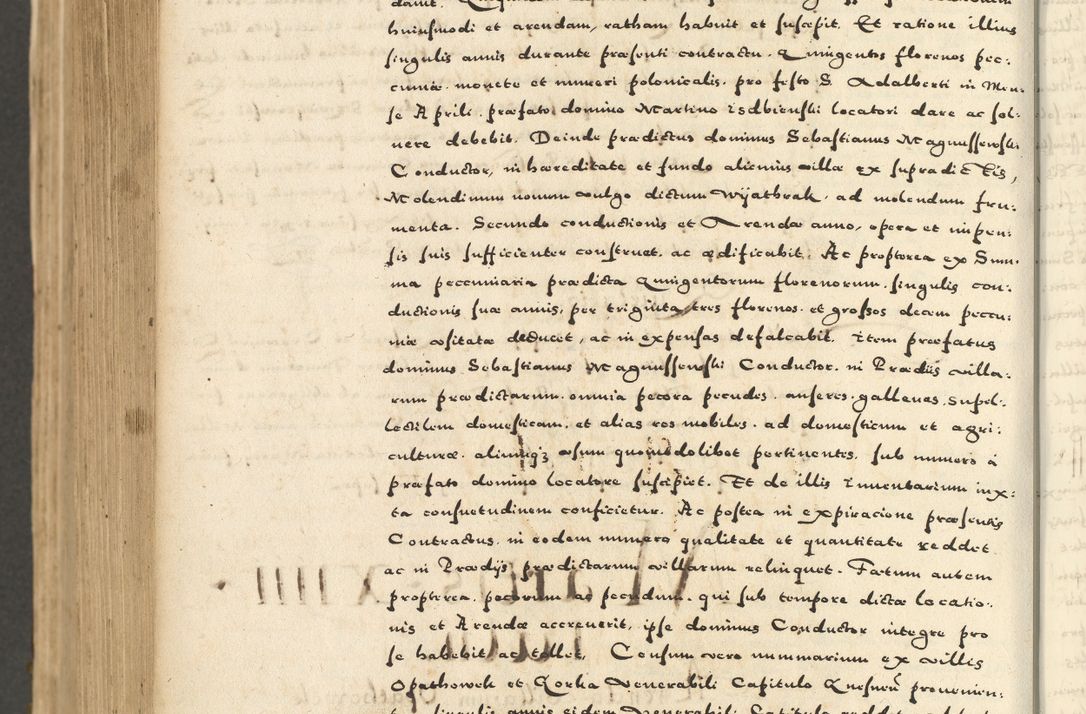 huiusmodi et arendam, ratham habuit et suscepit. Et ratione illius
singulis annis durante præsenti contractu. Quingentos florenos pec:
cuniæ. monete et numeri polonicalis. pro festo S. Adalberti in Men:
se Aprili. præfato domino Martino Isdbienski locatori dare ac sol:
uere debebit. Deinde prædictus dominus Sebastianus Magnussewski
Conductor, in hæreditate et fundo alicuius villæ ex supradictis,
Molendinum nouum vulgo dictum Wyathrak. ad molendum fru:
menta. Secundo conductionis et Arendæ anno, opera et impen:
sis suis sufficienter construet. ac ædificabit. Ac propterea ex Sum:
ma peccuniaria prædicta Quingentorum florenorum. singulis con:
ductionis suæ annis, per triginta tres florenos. et grossos decem peccu:
niæ vsitatæ deducet, ac in expensas defalcabit. Item præfatus
dominus Sebastianus Magnussewski Conductor. in Prædiis villa:
rum prædictarum. omnia pecora pecudes. anseres. gallenas. supel:
lectilem domesticam. et alias res mobiles. ad domesticum et agri:
culturæ. aliumqz vsum quomodolibet pertinentes. sub numero à
præfato domino locatore suscipiet. Et de illis Inuentarium iux:
ta consuetudinem conficietur. Ac postea in expiracione præsentis
Contractus. in eodem numero qualitate et quantitate reddet
ac in Prædijs prædictarum villarum relinquet. Fœtum autem
propterea. pecorum ac pecudum. qui sub tempore dictæ locatio:
nis et Arendæ accreuerit, ipse dominus Conductor integre pro
se habebit ac tollet. Censum vero nummarium ex villis
Opathowek et Gorka Venerabili Capitulo Gnesnen̄ prouenien: